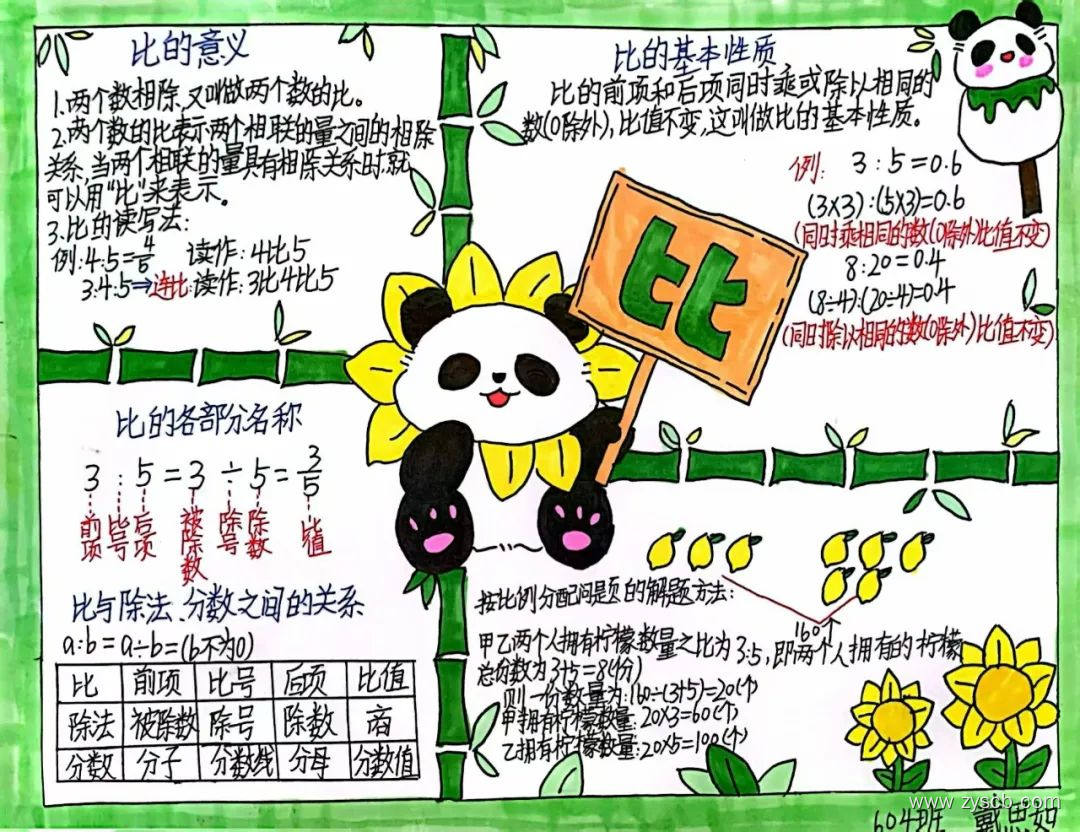 比的意义
1.两个数相除,又叫做两个数的比。
2.两个数的比表示两个相联的量之间的相除
关系,当两个相联的量具有相除关系时,就
可以用“比”来表示。
3.比的读写法:
例:4:5=4/5 读作:4比5
3:4:5⇒连比:读作:3比4比5
比的基本性质
比的前项和后项同时乘或除以相同的
数(0除外),比值不变,这叫做比的基本性质。
例: 3:5=0.6
(3×3):(5×3)=0.6
(同时乘相同的数(0除外)比值不变)
8:20=0.4
(8÷4):(20÷4)=0.4
(同时除以相同的数(0除外)比值不变)
比
比的各部分名称
3 : 5 = 3 ÷ 5 = 3/5
前项 比号 后项 被除数 除号 除数 比值
比与除法、分数之间的关系
a:b=a÷b=(b不为0)
比 前项 比号 后项 比值
除法 被除数 除号 除数 商
分数 分子 分数线 分母 分数值
按比例分配问题的解题方法:
160个
甲乙两个人拥有柠檬数量之比为3:5,即两个人拥有的柠檬
总份数为3+5=8(份)
则一份数量为:160÷(3+5)=20(个)
甲拥有柠檬数量:20×3=60(个)
乙拥有柠檬数量:20×5=100(个)
www.zyscb.com
604班 戴思如